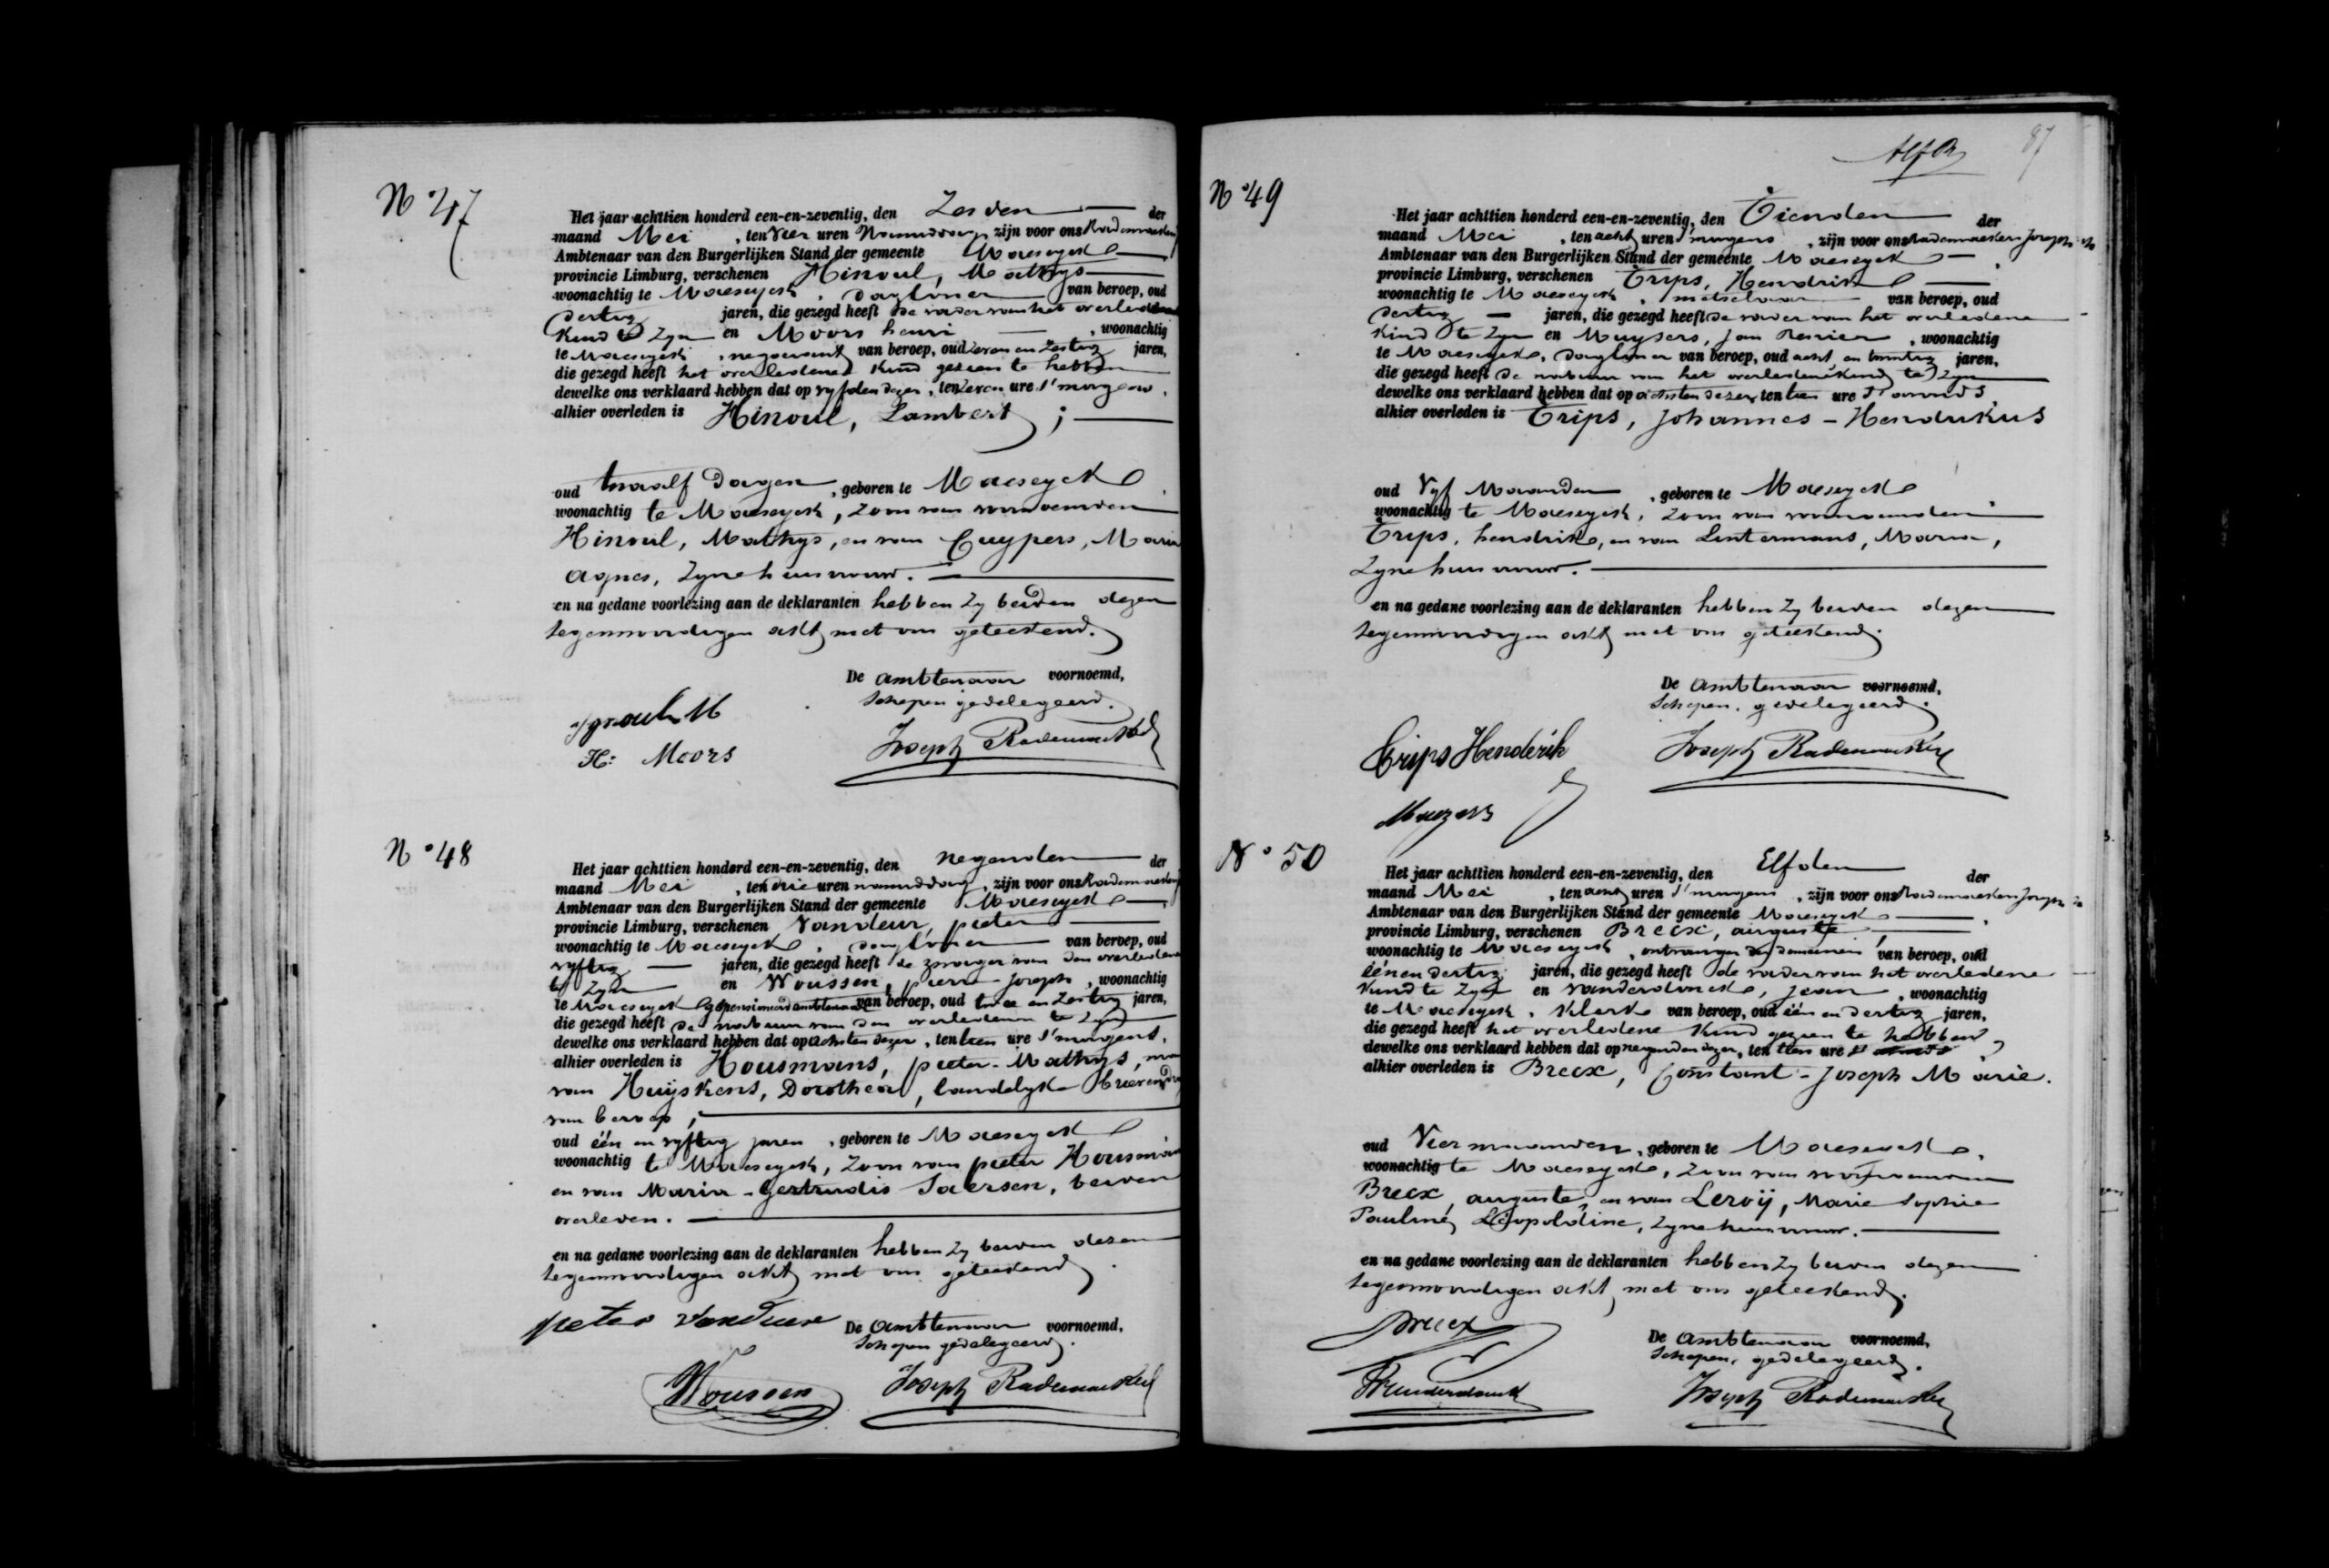 N° 47
Het jaar achttien honderd een-en-zeventig, den Zesden der
maand Mei, ten vier uren Namiddag, zijn voor ons Rademaekers
Ambtenaar van den Burgerlijken Stand der gemeente Maeseyck
provincie Limburg, verschenen Hinoul, Mathys
woonachtig te Maeseyck, dagloner van beroep, oud
dertig jaren, die gezegd heeft de vader van het overledene
kind te zyn en Moors henri, woonachtig
te Maeseyck, negociant van beroep, oud zeven en zestig jaren,
die gezegd heeft het overledene kind gezien te hebben
dewelke ons verklaard hebben dat op vyfden dezer, ten zeven ure s'morgens,
alhier overleden is Hinoul, Lambert;
oud twaalf dagen, geboren te Maeseyck,
woonachtig te Maeseyck, zoon van voornoemden
Hinoul, Mathys, en van Cuypers, Maria
Agnes, zyne huisvrouw.
en na gedane voorlezing aan de deklaranten hebben zy beiden dezen
tegenwoordigen akt met ons geteekend.
De ambtenaar voornoemd,
Schepen gedelegeerd.
H: Moors
Joseph Rademaekers
N° 48
Het jaar achttien honderd een-en-zeventig, den negenden der
maand Mei, ten drie uren namiddag, zijn voor ons Rademaekers
Ambtenaar van den Burgerlijken Stand der gemeente Maeseyck,
provincie Limburg, verschenen Vandeur, pieter
woonachtig te Maeseyck, dagloner van beroep, oud
vyftig jaren, die gezegd heeft de zwager van den overledene
te zyn en Woussen, pierre-Joseph, woonachtig
te Maeseyck gepensioneerd ambtenaar van beroep, oud twee en zestig jaren,
die gezegd heeft de nabuur van den overledenen te zyn
dewelke ons verklaard hebben dat op achsten dezer, ten tien ure s'morgens,
alhier overleden is Housmans, pieter-Mathys, man
van Huijskens, Dorothea, landelyke
van beroep;
oud één en vyftig jaren, geboren te Maeseyck,
woonachtig te Maeseyck, zoon van pieter Housmans
en van Maria-Gertrudis Saersen, beiden
overleden.
en na gedane voorlezing aan de deklaranten hebben zy beiden dezen
tegenwoordigen akt met ons geteekend.
peter vandeur
De ambtenaar voornoemd,
Schepen gedelegeerd.
Woussen
Joseph Rademaekers
87
N° 49
Het jaar achttien honderd een-en-zeventig, den Tienden der
maand Mei, ten acht uren s'morgens, zijn voor ons Rademaekers Joseph
Ambtenaar van den Burgerlijken Stand der gemeente Maeseyck,
provincie Limburg, verschenen Trips, Hendrik
woonachtig te Maeseyck, metselaar van beroep, oud
dertig jaren, die gezegd heeft de vader van het overledene
kind te zyn en Muysers, Jan Renier, woonachtig
te Maeseyck, dagloner van beroep, oud acht en twintig jaren,
die gezegd heeft de nabuur van het overledene kind te zyn
dewelke ons verklaard hebben dat op achsten dezer ten tien ure s'avonds,
alhier overleden is Trips, Johannes-Hendrikus
oud Vyf Maanden, geboren te Maeseyck,
woonachtig te Maeseyck, zoon van voornoemden
Trips, hendrik, en van Lintermans, Maria,
zyne huisvrouw.
en na gedane voorlezing aan de deklaranten hebben zy beiden dezen
tegenwoordigen akt met ons geteekend.
De ambtenaar voornoemd,
Schepen gedelegeerd.
Trips Henderik
Joseph Rademaekers
N° 50
Het jaar achttien honderd een-en-zeventig, den Elfden der
maand Mei, ten acht uren s'morgens, zijn voor ons Rademaekers Joseph
Ambtenaar van den Burgerlijken Stand der gemeente Maeseyck,
provincie Limburg, verschenen Brecx, auguste
woonachtig te Maeseyck, ontvanger der domeinen van beroep, oud
één en dertig jaren, die gezegd heeft de vader van het overledene
kind te zyn en Vanderdonck, jean, woonachtig
te Maeseyck, klerk van beroep, oud één en dertig jaren,
die gezegd heeft het overledene kind gezien te hebben
dewelke ons verklaard hebben dat op negenden dezer, ten tien ure s'
alhier overleden is Brecx, Constant-Joseph Marie.
oud Vier maanden, geboren te Maeseyck,
woonachtig te Maeseyck, zoon van voornoemden
Brecx, auguste, en van Leroij, Marie Sophie
Pauline Léopoldine, zyne huisvrouw.
en na gedane voorlezing aan de deklaranten hebben zy beiden dezen
tegenwoordigen akt met ons geteekend.
Brecx
De ambtenaar voornoemd,
Schepen, gedelegeerd.
Vanderdonck
Joseph Rademaekers